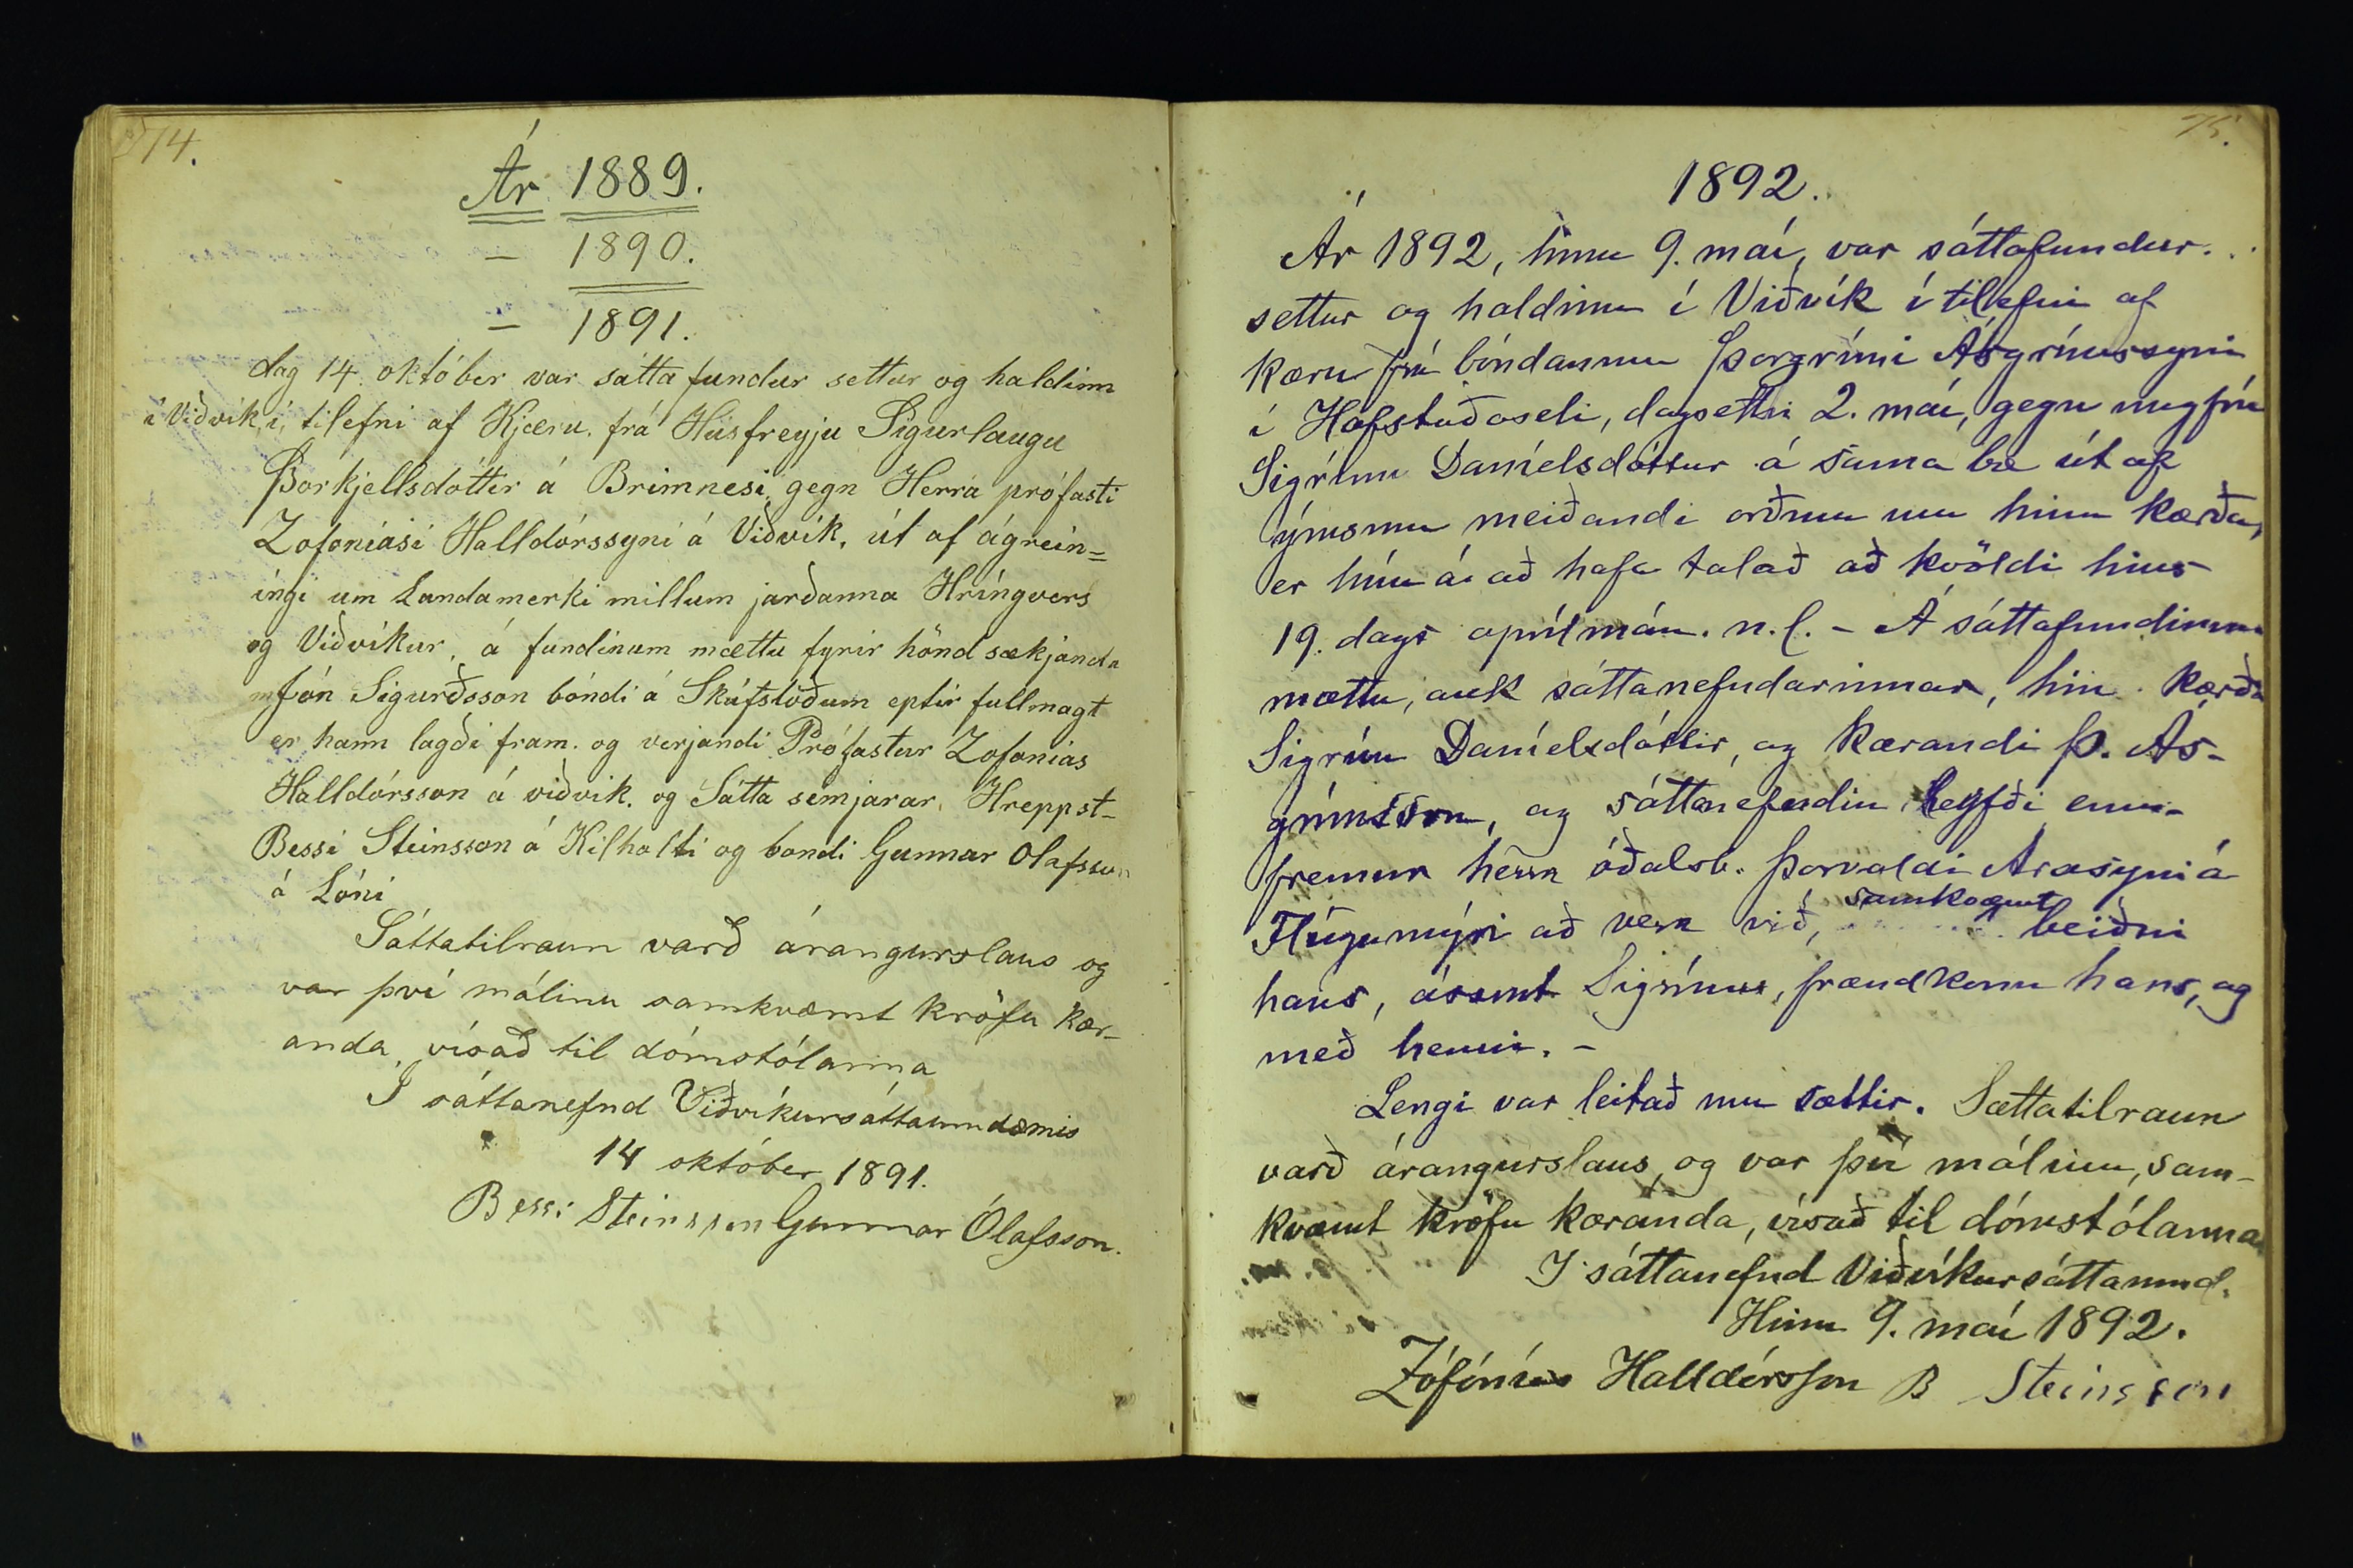 74.
Ár 1889.
— 1890.
— 1891.
dag 14. október var sátta fundur settur og haldinn
í Viðvík, í, tilefni af Kjæru. frá Húsfreyju Sigurlaugu
Þorkjellsdóttir á Brimnesi, gegn Herra prófasti
Zofoníasi Halldórssyni á Viðvík, út af ágrein=
íngi um Landamerki millum jarðanna Hríngvers
og Viðvíkur, á fundinum mættu fyrir hönd sækjanda
Jón Sigurðsson bóndi á Skúfstöðum eptir fullmagt
er hann lagði fram. og verjandi Prófastur Zofonías
Halldórsson á viðvik. og Sátta semjarar, Hreppst-
Bessi Steinsson á Kilholti og bondi Gunnar Olafsson
á Lóni
Sáttatilraun varð árangurslaus og
var því málinu samkvæmt kröfu kær-
anda, vísað til dómstólanna
Í sáttanefnd Viðvíkursáttaumdæmis
14 október 1891.
Bessi Steinsson Gunnar Ólafsson.
75.
1892.
Ár 1892, hinn 9. maí, var sáttafundur
settur og haldinn í Viðvík í tilefni af
kæru frá bóndanum Þorgrími Ásgrímssyni
í Hofstaðaseli, dagsettri 2. maí, gegn ungfrú
Sigrúnu Daníelsdóttur á sama bæ út af
ýmsum meiðandi orðum um hinn kærða,
er hún á að hafa talað að kvöldi hins
19. dags apríl mán. n. l. - Á sáttafundinum
mættu, auk sáttanefndarinnar, hin kærða
Sigrún Daníelsdóttir, og kærandi Þ. Ás-
grímsson, og sáttanefndin leyfði enn-
fremur herra óðalsb. Þorvaldi Arasyni á
Flugumýri að vera við, samkvæmt beiðni
hans, ásamt Sigrúnu, frændkonu hans, og
með henni. -
Lengi var leitað um sættir. Sættatilraun
varð árangurslaus, og var því málinu, sam-
kvæmt kröfu kæranda, vísað til dómstólanna
Í sáttanefnd Viðvíkursáttaumd.
Hinn 9. maí 1892.
Zófónías Halldórsson B Steinsson